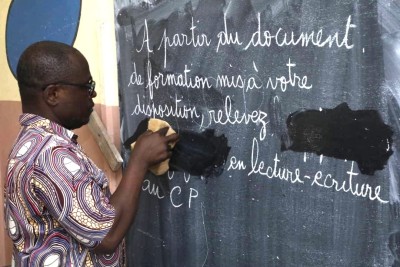 A partir du document
de formation mis à votre
disposition, relevez
en lecture-écriture
au CP